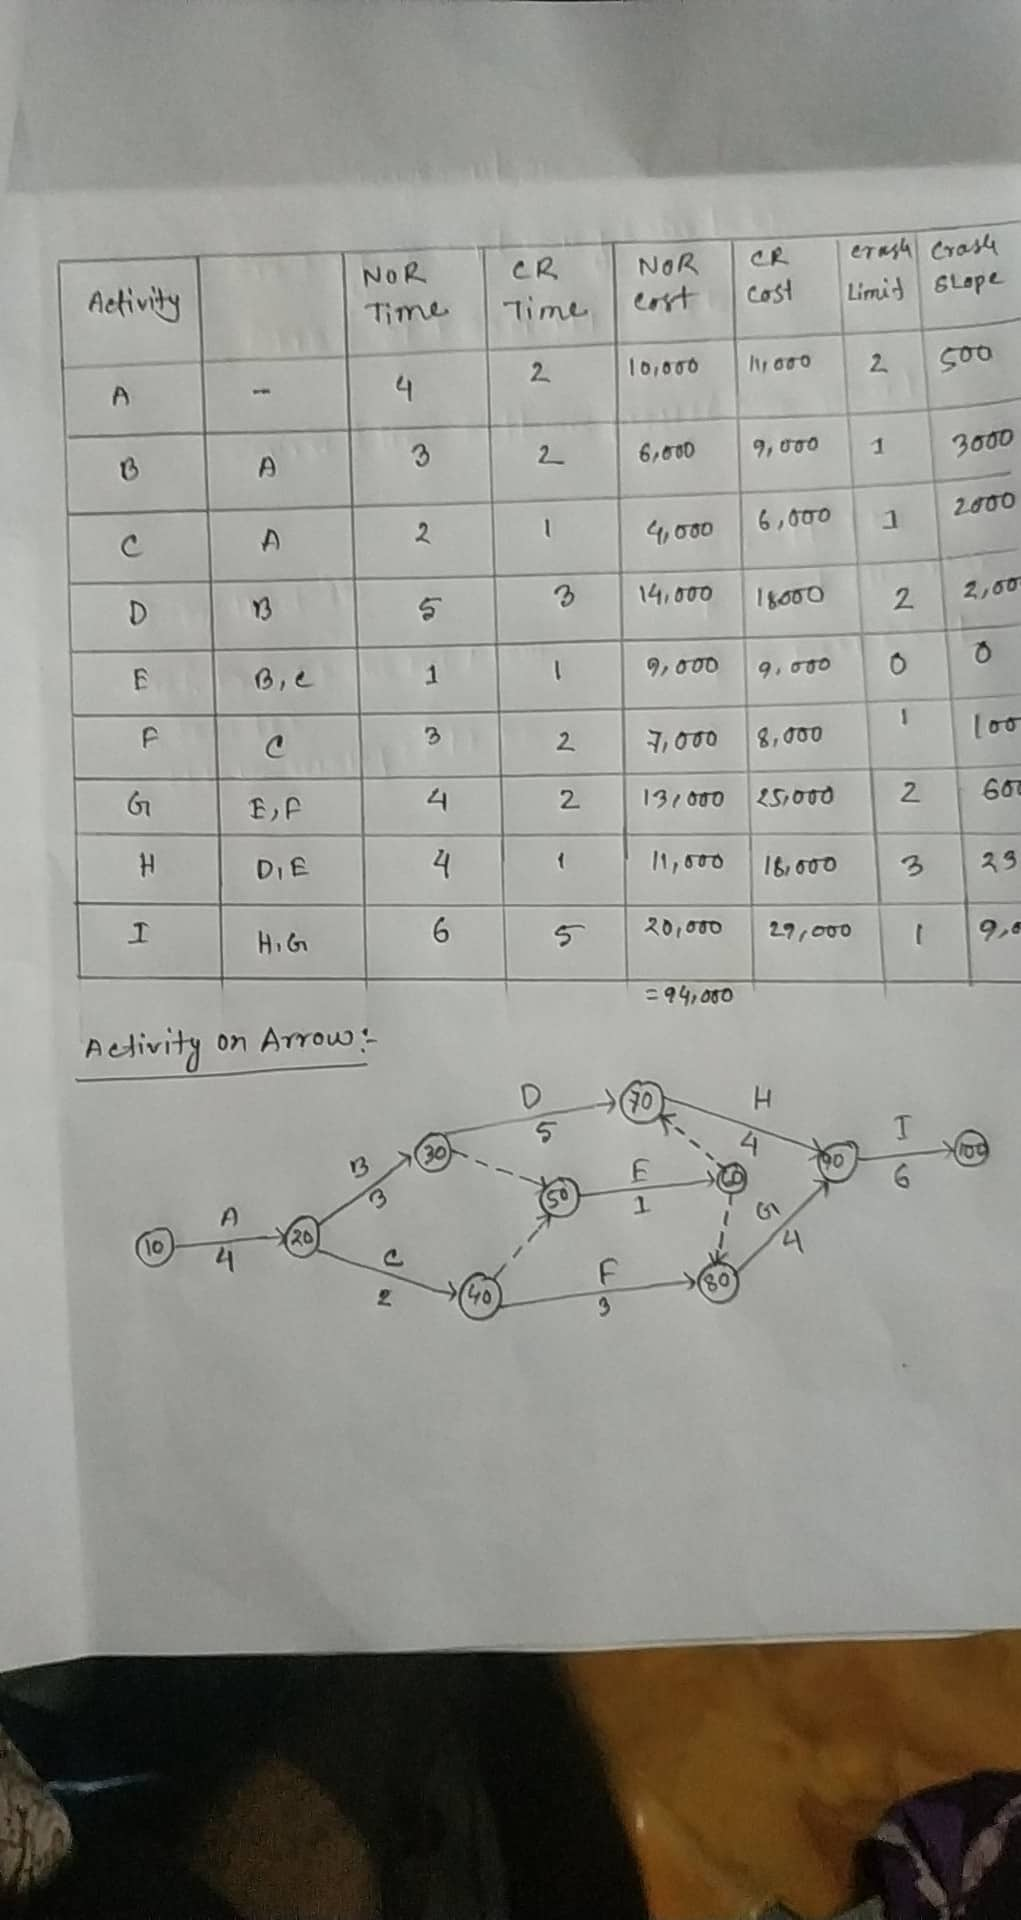 Activity NOR Time CR Time NOR cost CR Cost crash Limit Crash SLope
A - 4 2 10,000 11,000 2 500
B A 3 2 6,000 9,000 1 3000
C A 2 1 4,000 6,000 1 2000
D B 5 3 14,000 18000 2 2,00
E B,C 1 1 9,000 9,000 0 0
F C 3 2 7,000 8,000 1 100
G E,F 4 2 13,000 25,000 2 600
H D,E 4 1 11,000 18,000 3 23
I H,G 6 5 20,000 29,000 1 9,0
=94,000
Activity on Arrow:-
D 70 H
5 4 I
B 30 E 60 90 100
3 50 1 G 6
A 20 4
10 4 C F 80
2 40 3